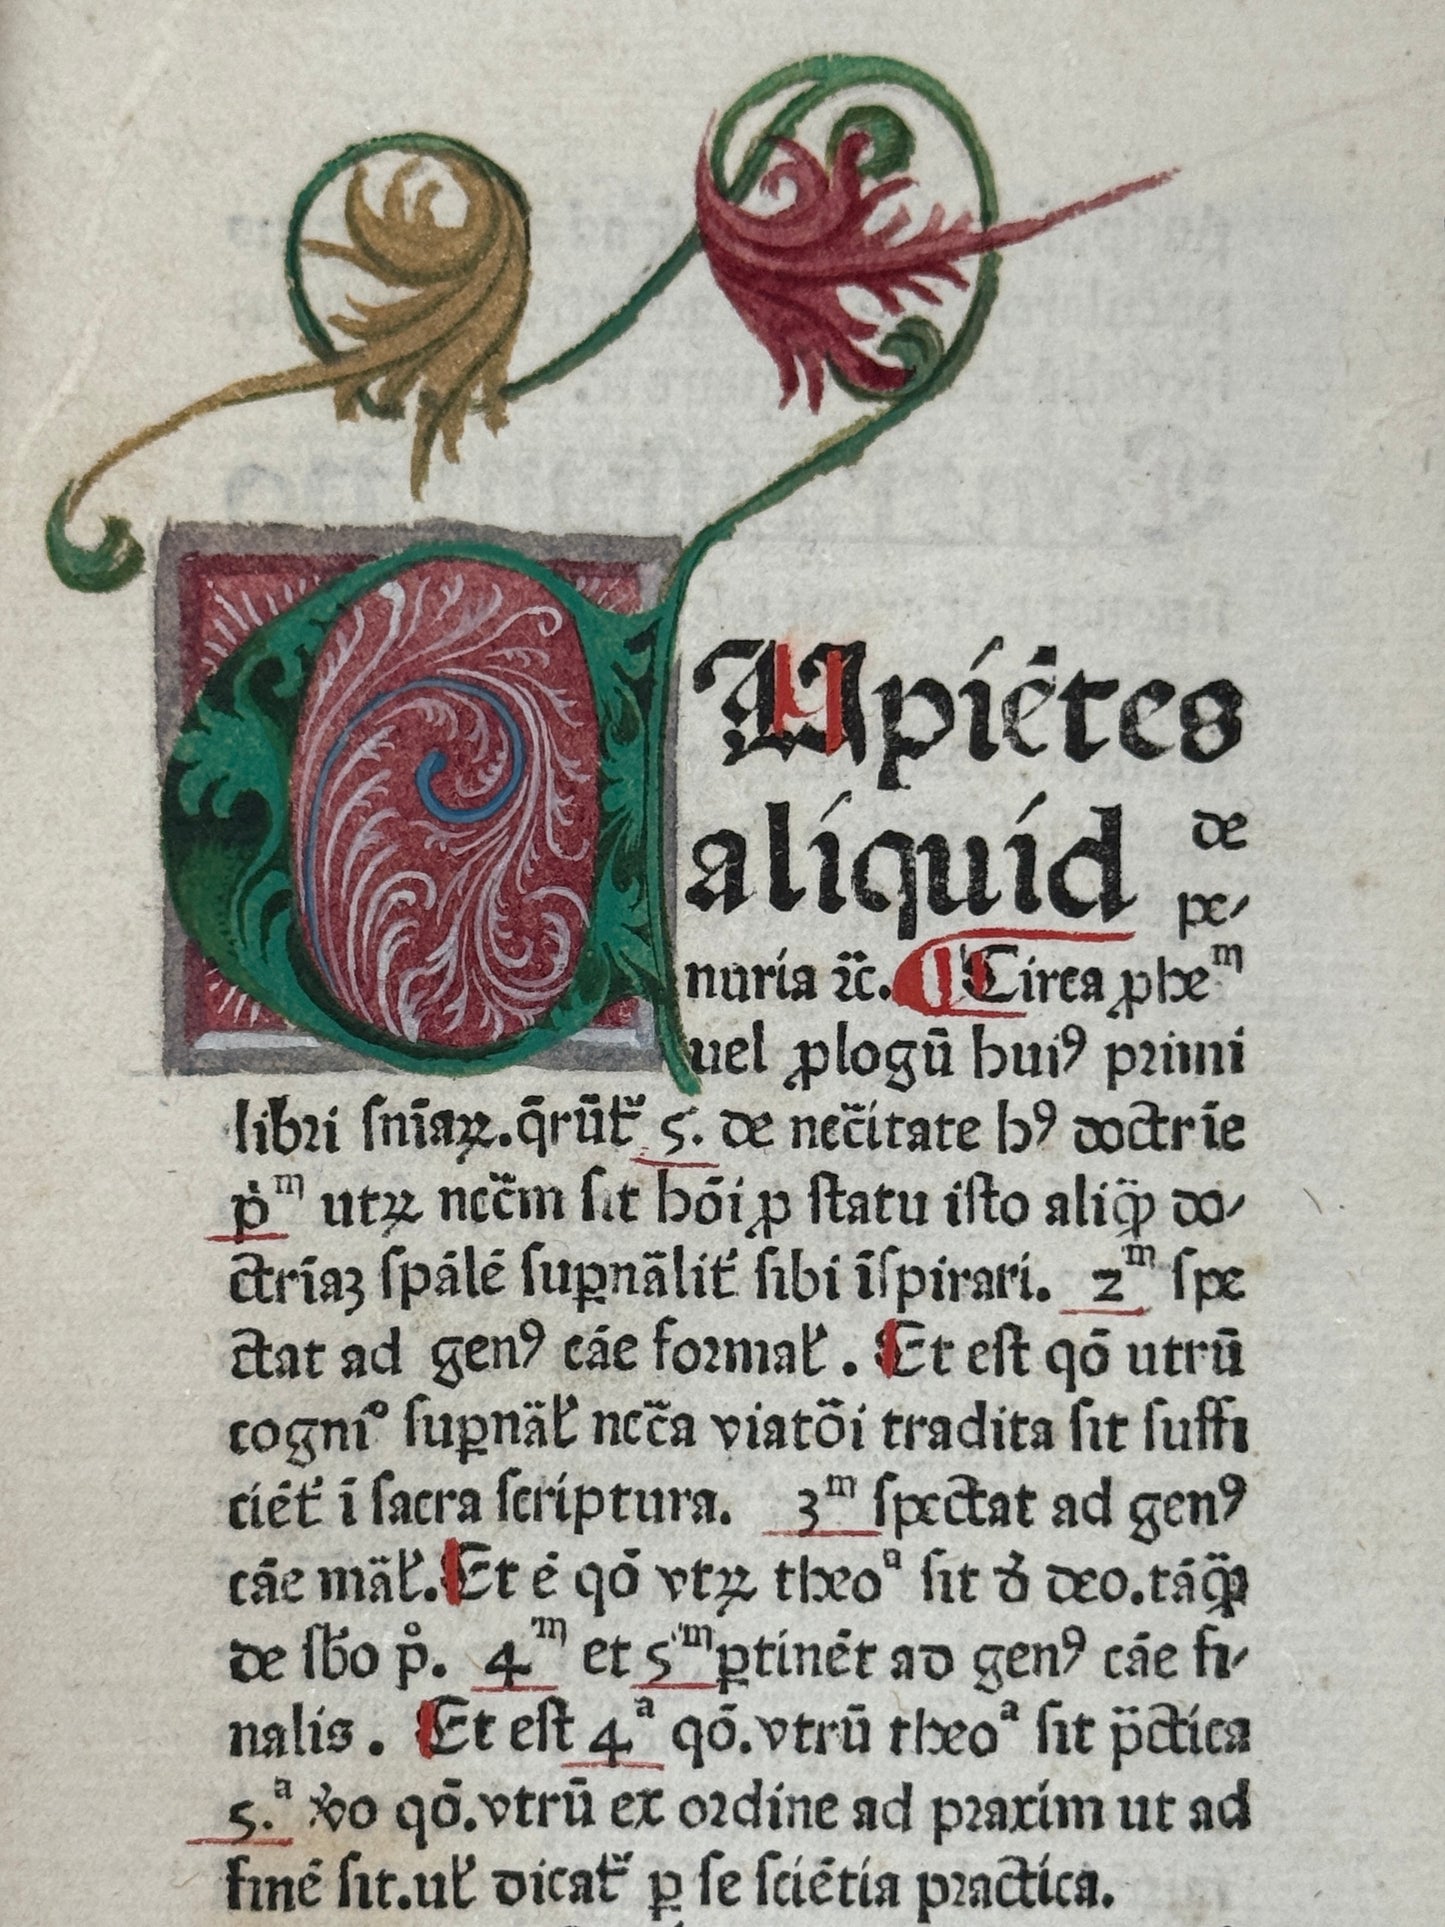 CUpiētes
aliquid de
pe/
nuria ⁊c̄. Circa ꝓhem
uel ꝓlogū huiꝰ primi
libri sniāꝝ. q̄rūt᷑ 5. de necc̄itate hꝰ doctrīe
pm utꝝ necc̄m sit hōi ꝓ statu isto aliq̄ do/
ctrīaʒ spālē suꝑnālit᷑ sibi īspirari. 2m spe
ctat ad genꝰ cāe formal᷑. Et est qō utrū
cognio suꝑnāl᷑ necc̄a viatōi tradita sit suffi
ciēt᷑ ī sacra scriptura. 3m spectat ad genꝰ
cāe māl᷑. Et ē qō vtꝝ theoa sit ð deo. tāq̄ꝫ
de sb̄o po. 4m et 5m ꝑtinēt ad genꝰ cāe fi/
nalis. Et est 4a qō. vtrū theoa sit p̄ctica
5.a v̊o qō. vtrū ex ordine ad praxim ut ad
finē sit. ul᷑ dicat᷑ ꝑ se sciētia practica.